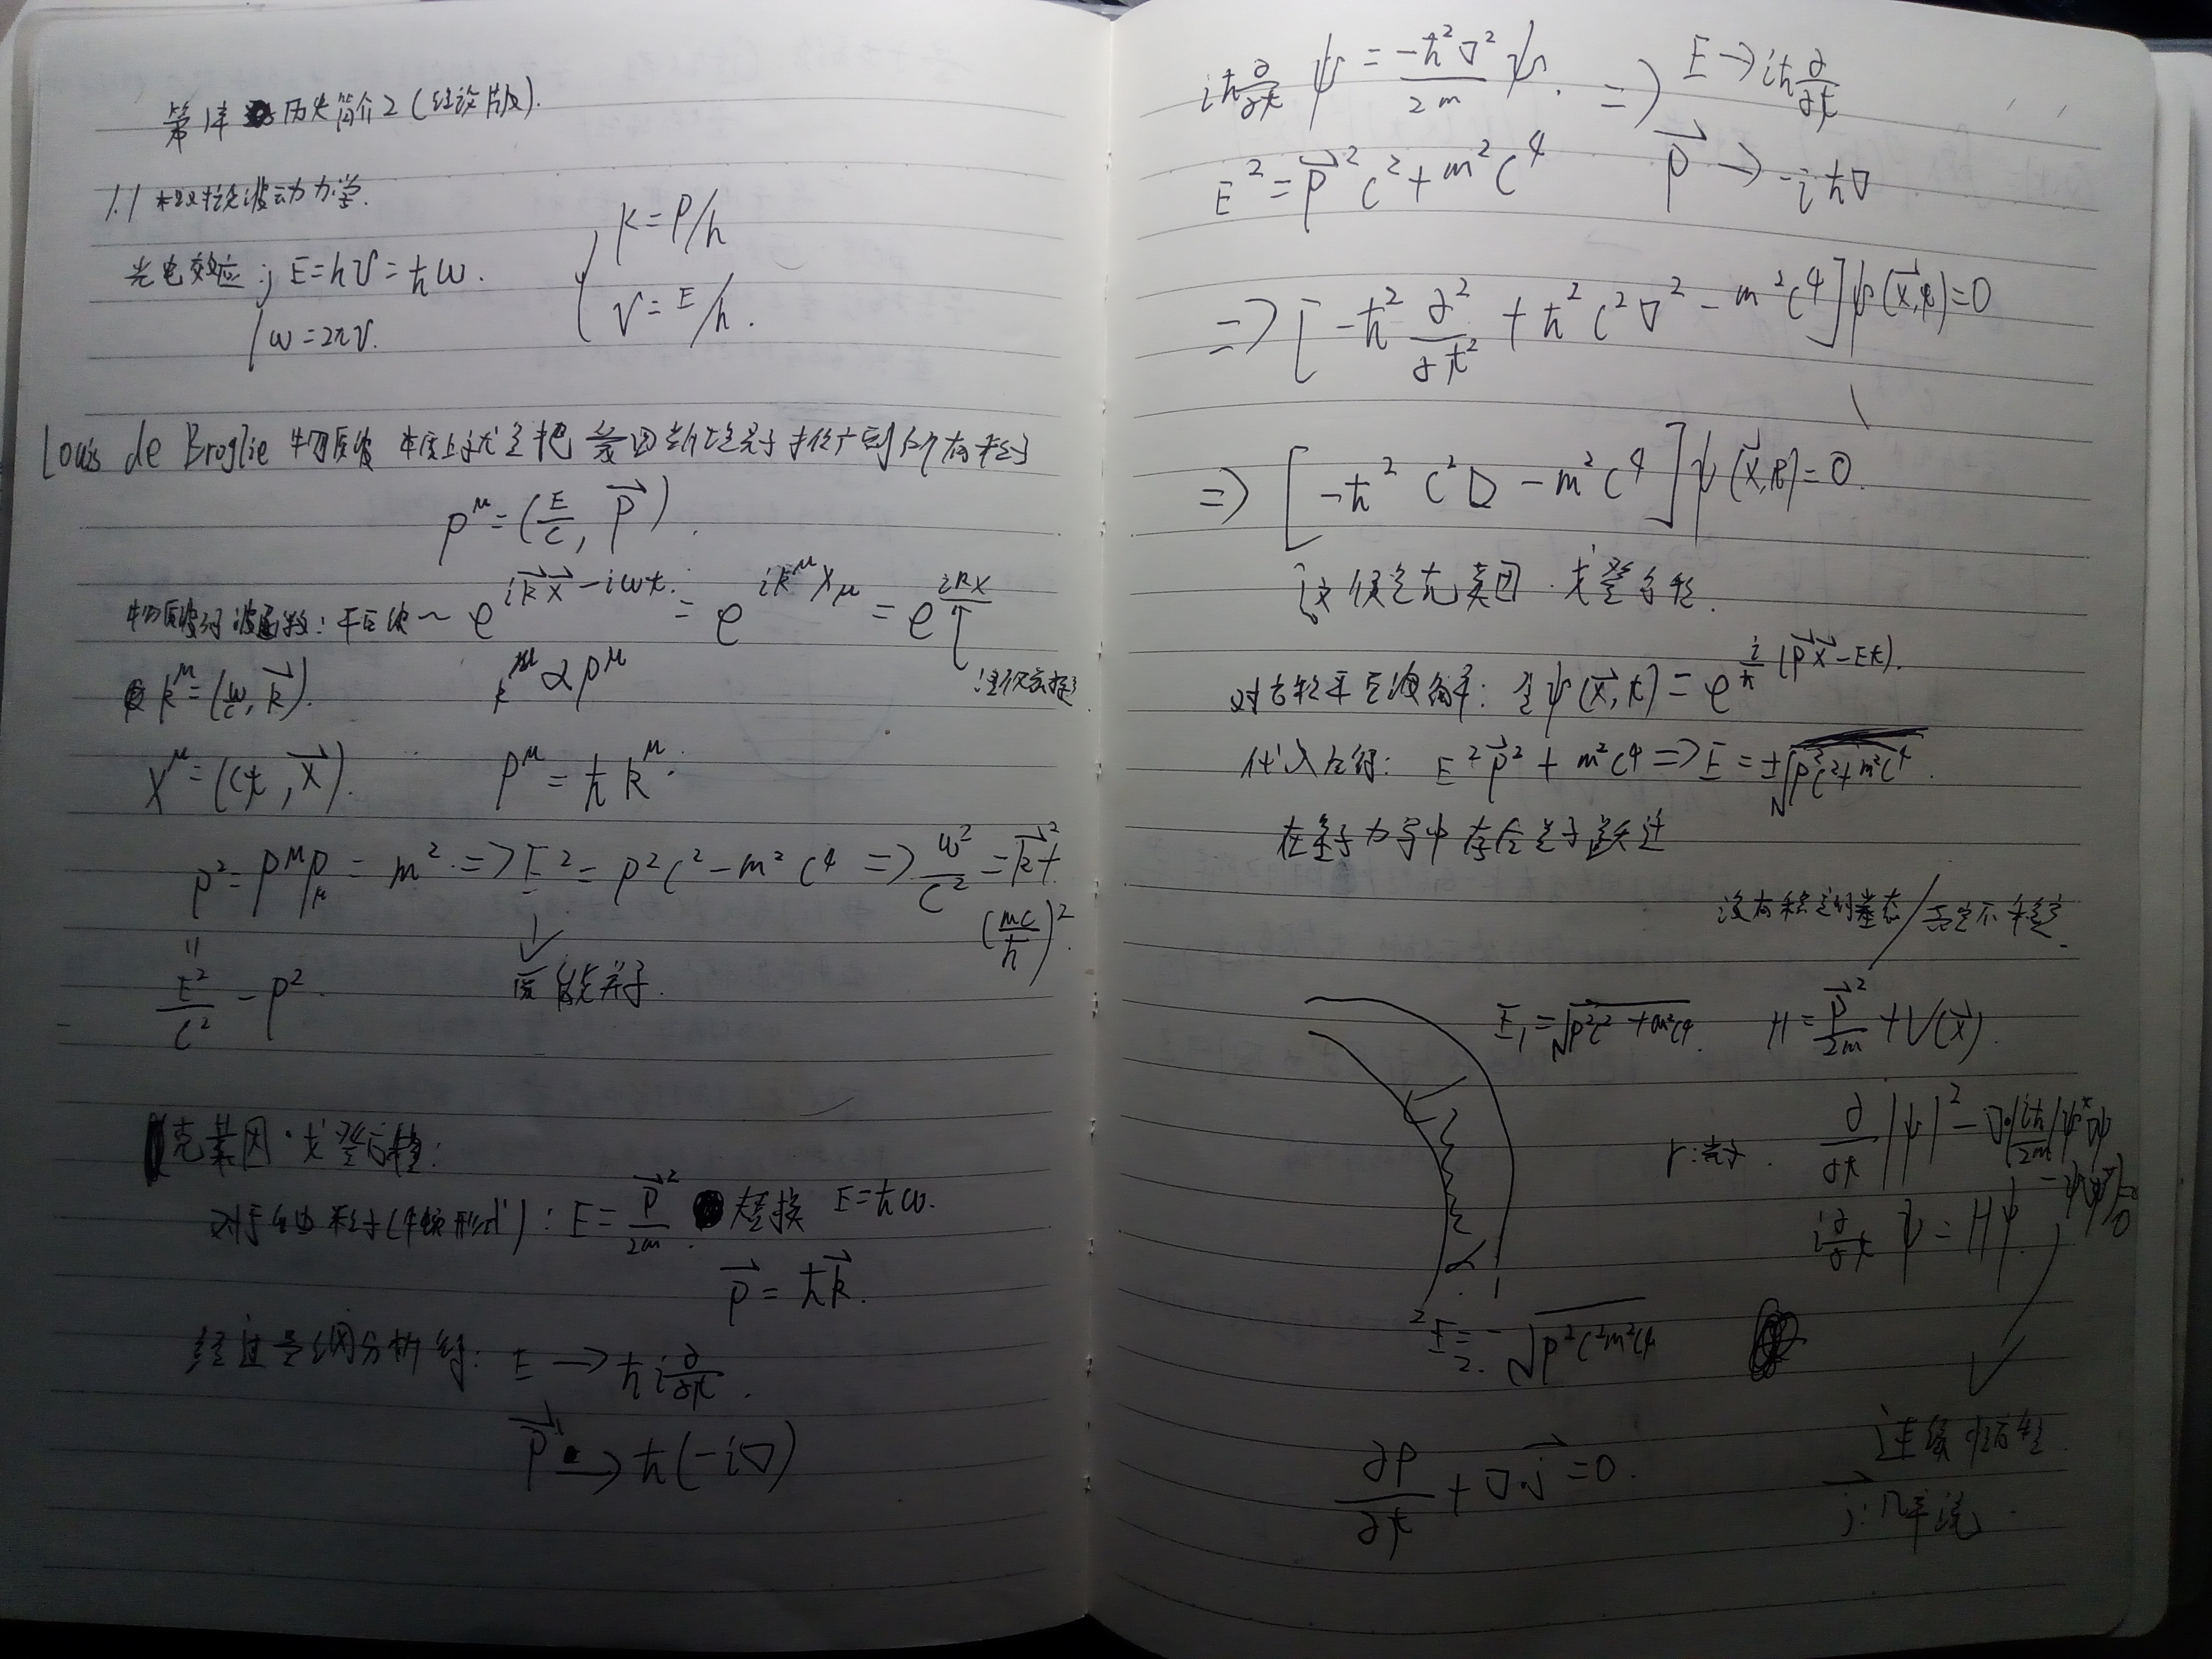 第1章 历史简介2（建设版).
1.1 相对论波动力学.
光电效应; E=hν=ħω.
ω=2πν.
k=P/h
ν=E/h.
Louis de Broglie 物质波 本质上就是把 爱因斯坦光子推广到所有粒子
p^μ=(E/c, p⃗).
物质波的波函数: 平面波~ e^{ik⃗x⃗-iωt} = e^{ik^μx_μ} = e^{ikx}
k^μ=(ω/c, k⃗). k^μ∝p^μ
x^μ=(ct, x⃗). p^μ=ħk^μ.
p²=p^μp_μ=m² ⇒ E²=p²c²-m²c⁴ ⇒ ω²/c²=k⃗²+(mc/ħ)².
=
E²/c²-p². 质能关系.
克莱因·戈登方程:
对于自由粒子(牛顿形式): E=p⃗²/2m. 替换 E=ħω.
p⃗=ħk⃗.
经过量纲分析得: E→ħi∂/∂t.
p⃗→ħ(-i∇)
iħ∂/∂t ψ=-ħ²∇²/2m ψ. ⇒ E→iħ∂/∂t
E²=p⃗²c²+m²c⁴ p⃗→-iħ∇
⇒[-ħ²∂²/∂t²+ħ²c²∇²-m²c⁴]ψ(x⃗,t)=0
⇒[-ħ²c²□-m²c⁴]ψ(x⃗,t)=0.
这便是克莱因·戈登方程.
对方程平面波解: 令ψ(x⃗,t)=e^{i/ħ(p⃗x⃗-Et)}.
代入方程: E²p⃗²+m²c⁴⇒E=±√(p²c²+m²c⁴).
在量子力学中存在量子跃迁
没有稳定的基态/真空不稳定.
E₁=√(p²c²+m²c⁴). H=p⃗²/2m+V(x⃗).
γ:光子. ∂/∂t|ψ|²-∇·(iħ/2m)(ψ*∇ψ-ψ∇ψ*)=0
i∂/∂t ψ=Hψ.
E₂=-√(p²c²m²c⁴)
∂ρ/∂t+∇·j⃗=0. 连续性方程.
j⃗:几率流.